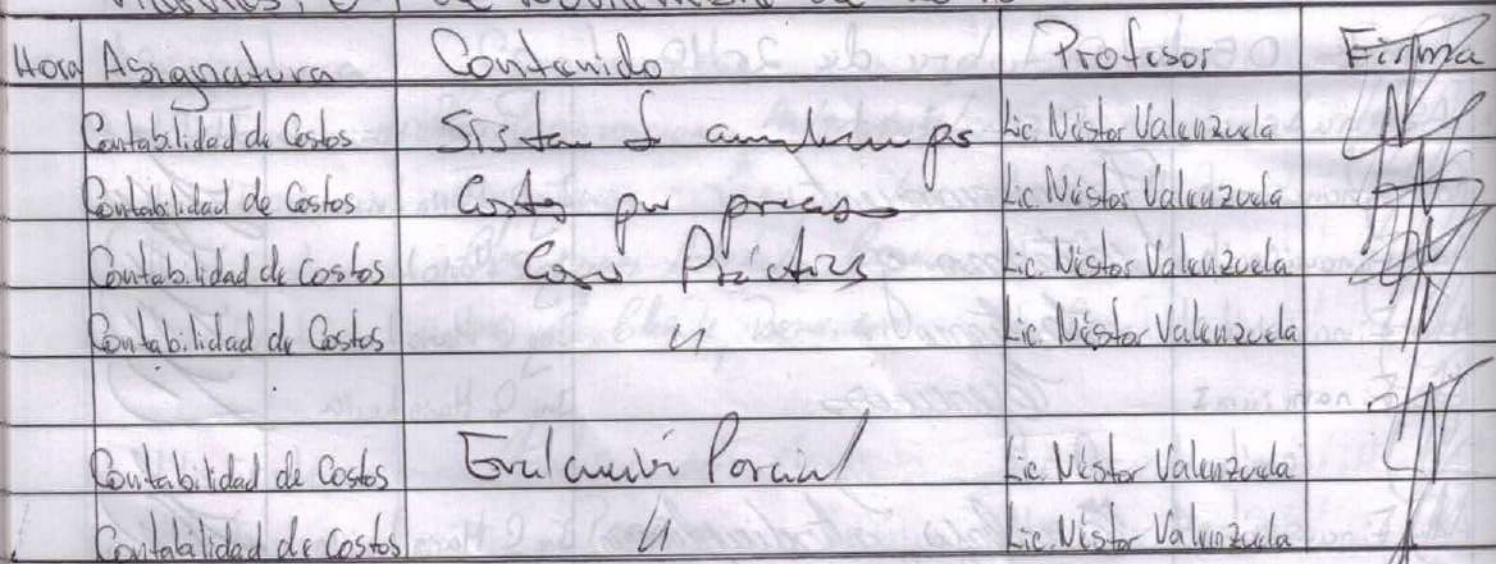 Hora Asignatura Contenido Profesor Firma
Contabilidad de Costos Lic. Néstor Valenzuela
Contabilidad de Costos Costos por proceso Lic. Néstor Valenzuela
Contabilidad de Costos Casos Prácticos Lic. Néstor Valenzuela
Contabilidad de Costos " Lic. Néstor Valenzuela
Contabilidad de Costos Evaluación Parcial Lic. Néstor Valenzuela
Contabilidad de Costos " Lic. Néstor Valenzuela